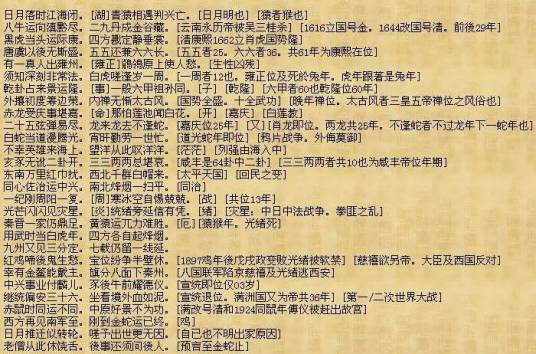 日月落时江海闭。[湖]青猿相遇判兴亡。[日月明也] [猿者猴也]
八牛运向滇黔尽。二九丹成金谷藏。[云南永历帝被吴三桂杀] [1616立国号金。1644改国号清。前後29年]
黑虎当头运际康。四方戡定静垂裳。[清康熙1662立肖虎国势隆]
唐虞以後无斯盛。五五还兼六六长。[五五者25。六六者36。共61年为康熙在位]
有一真人出雍州。[雍正]鹡鸰原上使人愁。[生性凶残]
须知深刻非常法。白虎嗟逢岁一周。[一周者12也。雍正位及死於兔年。虎年跟著是兔年]
乾卦占来景运隆。[事]一般六甲祖孙同。[子] [乾隆] [六甲者60也乾隆位60年]
外攘初度筹边策。内禅无惭太古风。[国势全盛。十全武功] [晚年禅位。太古风者三皇五帝禅位之风俗也]
赤龙受庆事堪嘉。[金]那怕莲池闻白花。[开] [嘉庆] [白莲教]
二十五弦弹易尽。龙来龙去不逢蛇。[嘉庆位25年] [又] [肖龙即位。两龙共25年。不逢蛇者不过龙年下一蛇年也]
白蛇当道漫腾光。宵旰勤劳一世忙。[道光蛇年即位] [鸦片战争。外侮莫御]
不幸英雄来海上。望洋从此叹洋洋。[茫茫] [列强由海入中]
亥豕无讹二卦开。三三两两总堪哀。[咸丰是64卦中二卦] [三三两两者共10也为咸丰帝位年期]
东南万里红巾扰。西北千群白帽来。[太平天国] [回民之变]
同心佐治运中兴。南北烽烟一扫平。[同治]
一纪刚周阳一复。[两]寒冰空自惕兢兢。[战] [共位13年]
光芒闪闪见灾星。[炎]统绪旁延信有凭。[绪] [灾星：中日中法战争。拳匪之乱]
秦晋一家仍鼎足。黄猿运兀力难胜。[厄] [猿猴年。光绪死]
用武时当白虎年。四方各自起烽烟。
九州又见三分定。七载仍留一线延。
红鸡啼後鬼生愁。宝位纷争半壁休。[1897鸡年後戊戌政变败光绪被软禁] [慈禧欲另帝。大臣及西国反对]
幸有金鳌能戴主。旗分八面下秦州。[八国联军陷京慈禧及光绪逃西安]
中兴事业付麟儿。豕後牛前耀德仪。[宣统即位仅03岁]
继统偏安三十六。坐看境外血如泥。[宣统退位。满洲国又为帝共36年] [第一/二次世界大战]
赤鼠时同运不同。中原好景不为功。[满改号清和1924同鼠年傅仪被赶出故宫]
西方再见南军至。刚到金蛇运已终。[鸡]
日月推迁似转轮。嗟予出世更无因。[自己也不明出家原因]
老僧从此休饶舌。後事还须问後人。[预言至金蛇止]